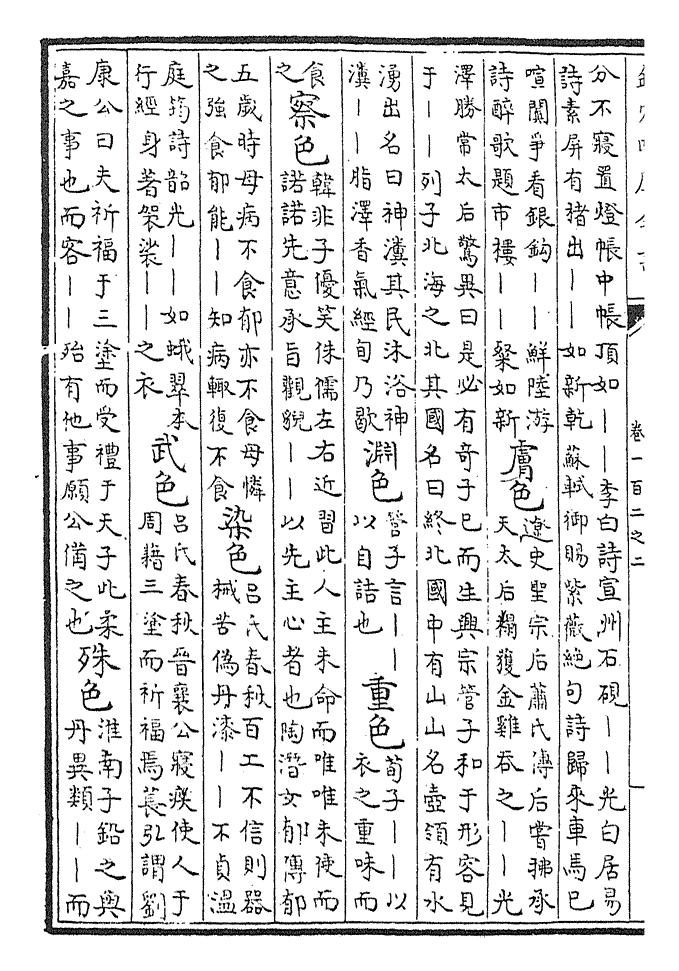 卷一百二之二
分不寢置燈帳中帳頂如｜｜李白詩宣州石硯｜｜光白居易
詩素屏有褚出｜｜如新乾蘇軾御賜紫薇絶句詩歸來車馬已
喧闐爭看銀鈎｜｜鮮陸游
詩醉歌題市樓｜｜粲如新
膚色
遼史聖宗后蕭氏傳后嘗拂承
天太后榻獲金雞吞之｜｜光
澤勝常太后驚異曰是必有奇子已而生興宗管子和于形容見
于｜｜列子北海之北其國名曰終北國中有山山名壺領有水
湧出名曰神瀵其民沐浴神
瀵｜｜脂澤香氣經旬乃歇
淵色
管子言｜｜
以自詰也
重色
荀子｜｜以
衣之重味而
食
之
察色
韓非子優笑侏儒左右近習此人主未命而唯唯未使而
諾諾先意承旨觀貌｜｜以先主心者也陶潛女郁傳郁
五歲時母病不食郁亦不食母憐
之強食郁能｜｜知病輙復不食
染色
呂氏春秋百工不信則器
械苦偽丹漆｜｜不貞溫
庭筠詩韶光｜｜如蛾翠本
行經身著袈裟｜｜之衣
武色
呂氏春秋晉襄公寢疾使人于
周藉三塗而祈福焉萇弘謂劉
康公曰夫祈福于三塗而受禮于天子此柔
嘉之事也而客｜｜殆有他事願公備之也
殊色
淮南子鉛之與
丹異類｜｜而